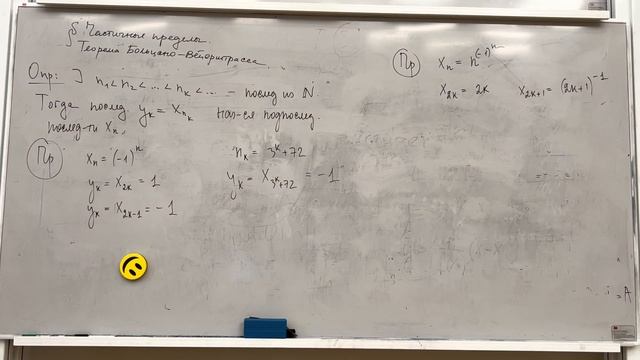 § Частичные пределы.
Теорема Больцано-Вейерштрасса
Опр: ∃ n₁ < n₂ < ... < nₖ < ... – послед из ℕ.
Тогда послед yₖ = xₙₖ наз-ся подпослед.
послед-ти xₙ.
Пр xₙ = (-1)ⁿ
yₖ = x₂ₖ = 1
yₖ = x₂ₖ₋₁ = -1
nₖ = 3ᵏ + 72
yₖ = x_{3ᵏ+72} = -1
Пр xₙ = n^{(-1)ⁿ}
x₂ₖ = 2k x₂ₖ₊₁ = (2k+1)⁻¹
= A